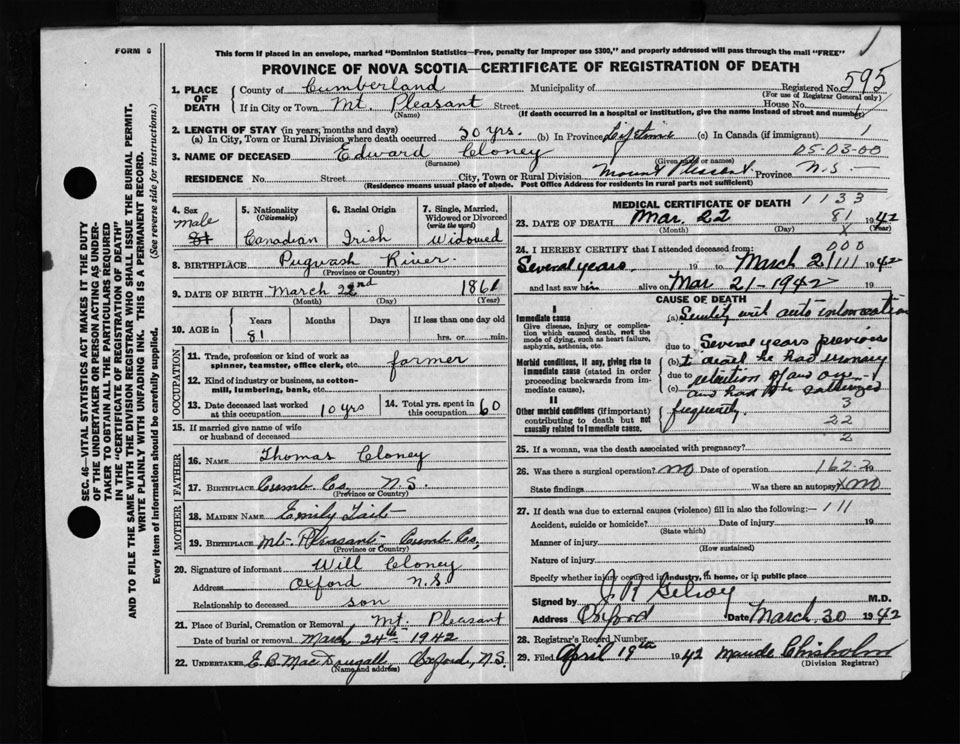 FORM 6
This form if placed in an envelope, marked "Dominion Statistics—Free, penalty for improper use $300," and properly addressed will pass through the mail "FREE"
PROVINCE OF NOVA SCOTIA—CERTIFICATE OF REGISTRATION OF DEATH
SEC. 46—VITAL STATISTICS ACT MAKES IT THE DUTY
OF THE UNDERTAKER OR PERSON ACTING AS UNDER-
TAKER TO OBTAIN ALL THE PARTICULARS REQUIRED
IN THE "CERTIFICATE OF REGISTRATION OF DEATH"
AND TO FILE THE SAME WITH THE DIVISION REGISTRAR WHO SHALL ISSUE THE BURIAL PERMIT.
WRITE PLAINLY WITH UNFADING INK. THIS IS A PERMANENT RECORD.
Every item of information should be carefully supplied. (See reverse side for instructions.)
1. PLACE OF DEATH
County of Cumberland Municipality of Registered No. 595
(For use of Registrar General only)
If in City or Town Mt. Pleasant Street House No.
(Name) (If death occurred in a hospital or institution, give the name instead of street and number)
2. LENGTH OF STAY (in years, months and days)
(a) In City, Town or Rural Division where death occurred 50 yrs. (b) In Province Lifetime (c) In Canada (if immigrant) 1
3. NAME OF DECEASED Edward Cloney 05-03-00
(Surname) (Given name or names)
RESIDENCE No. Street City, Town or Rural Division Mount Pleasant Province N.S.
(Residence means usual place of abode. Post Office Address for residents in rural parts not sufficient)
4. Sex Male
5. Nationality (Citizenship) Canadian
6. Racial Origin Irish
7. Single, Married, Widowed or Divorced (write the word) Widowed
8. BIRTHPLACE Pugwash River.
(Province or Country)
9. DATE OF BIRTH March 22nd 1861
(Month) (Day) (Year)
10. AGE in Years Months Days If less than one day old
81 hrs. or min.
OCCUPATION
11. Trade, profession or kind of work as spinner, teamster, office clerk, etc. farmer
12. Kind of industry or business, as cotton-mill, lumbering, bank, etc.
13. Date deceased last worked at this occupation 10 yrs
14. Total yrs. spent in this occupation 60
15. If married give name of wife or husband of deceased
FATHER
16. NAME Thomas Cloney
17. BIRTHPLACE Cumb. Co. N.S.
(Province or Country)
MOTHER
18. MAIDEN NAME Emily Tait
19. BIRTHPLACE Mt. Pleasant Cumb. Co,
(Province or Country)
20. Signature of informant Will Cloney
Address Oxford N.S
Relationship to deceased son
21. Place of Burial, Cremation or Removal Mt. Pleasant
Date of burial or removal March 24th 1942
22. UNDERTAKER E.B. MacDougall, Oxford, N.S.
(Name and address)
MEDICAL CERTIFICATE OF DEATH 1133
23. DATE OF DEATH Mar. 22 81 1942
(Month) (Day) (Year)
24. I HEREBY CERTIFY that I attended deceased from: 000
Several years. 19 to March 21 1942
and last saw him alive on Mar 21-1942 19
CAUSE OF DEATH
I
Immediate cause
Give disease, injury or complication which caused death, not the mode of dying, such as heart failure, asphyxia, asthenia, etc.
Morbid conditions, if any, giving rise to immediate cause (stated in order proceeding backwards from immediate cause).
II
Other morbid conditions (if important) contributing to death but not causally related to immediate cause.
(a) Senility with auto intoxication
due to Several years previous
(b) to death he had urinary
due to retention of and on
(c) and had to be catheterized
frequently. 3
22
2
25. If a woman, was the death associated with pregnancy?
26. Was there a surgical operation? no Date of operation 162-2
State findings Was there an autopsy? no
27. If death was due to external causes (violence) fill in also the following:— 111
Accident, suicide or homicide? Date of injury 19
(State which)
Manner of injury
(How sustained)
Nature of injury
Specify whether injury occurred in industry, in home, or in public place
Signed by J R Gilroy M.D.
Address Oxford Date March 30 1942
28. Registrar's Record Number
29. Filed April 19th 1942 Maude Chisholm
(Division Registrar)